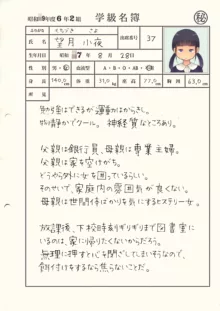 昭和 年度6年2組 学級名簿 ㊙
もちづき さよ
氏名 望月 小夜 出席番号 37
生年月日 7月28日
身長 140.0cm 体重 cm 77.0cm 63.0cm
知り事はできるが運動がはからきし。
物静かでクール。神経質なところあり。
父親は銀行員、母親は専業主婦。
父親は家を空けがち。
どうやら外に女を囲っているらしい。
そのせいで、家庭内の雰囲気が良くない。
母親は世間体ばかりを気にするヒステリー女。
放課後、下校時刻ギリギリまで図書室に
いるのは、家に帰りたくないからだろう。
無理に押すと心を閉ざしてしまいそうなので、
するなら焦らないことだ。